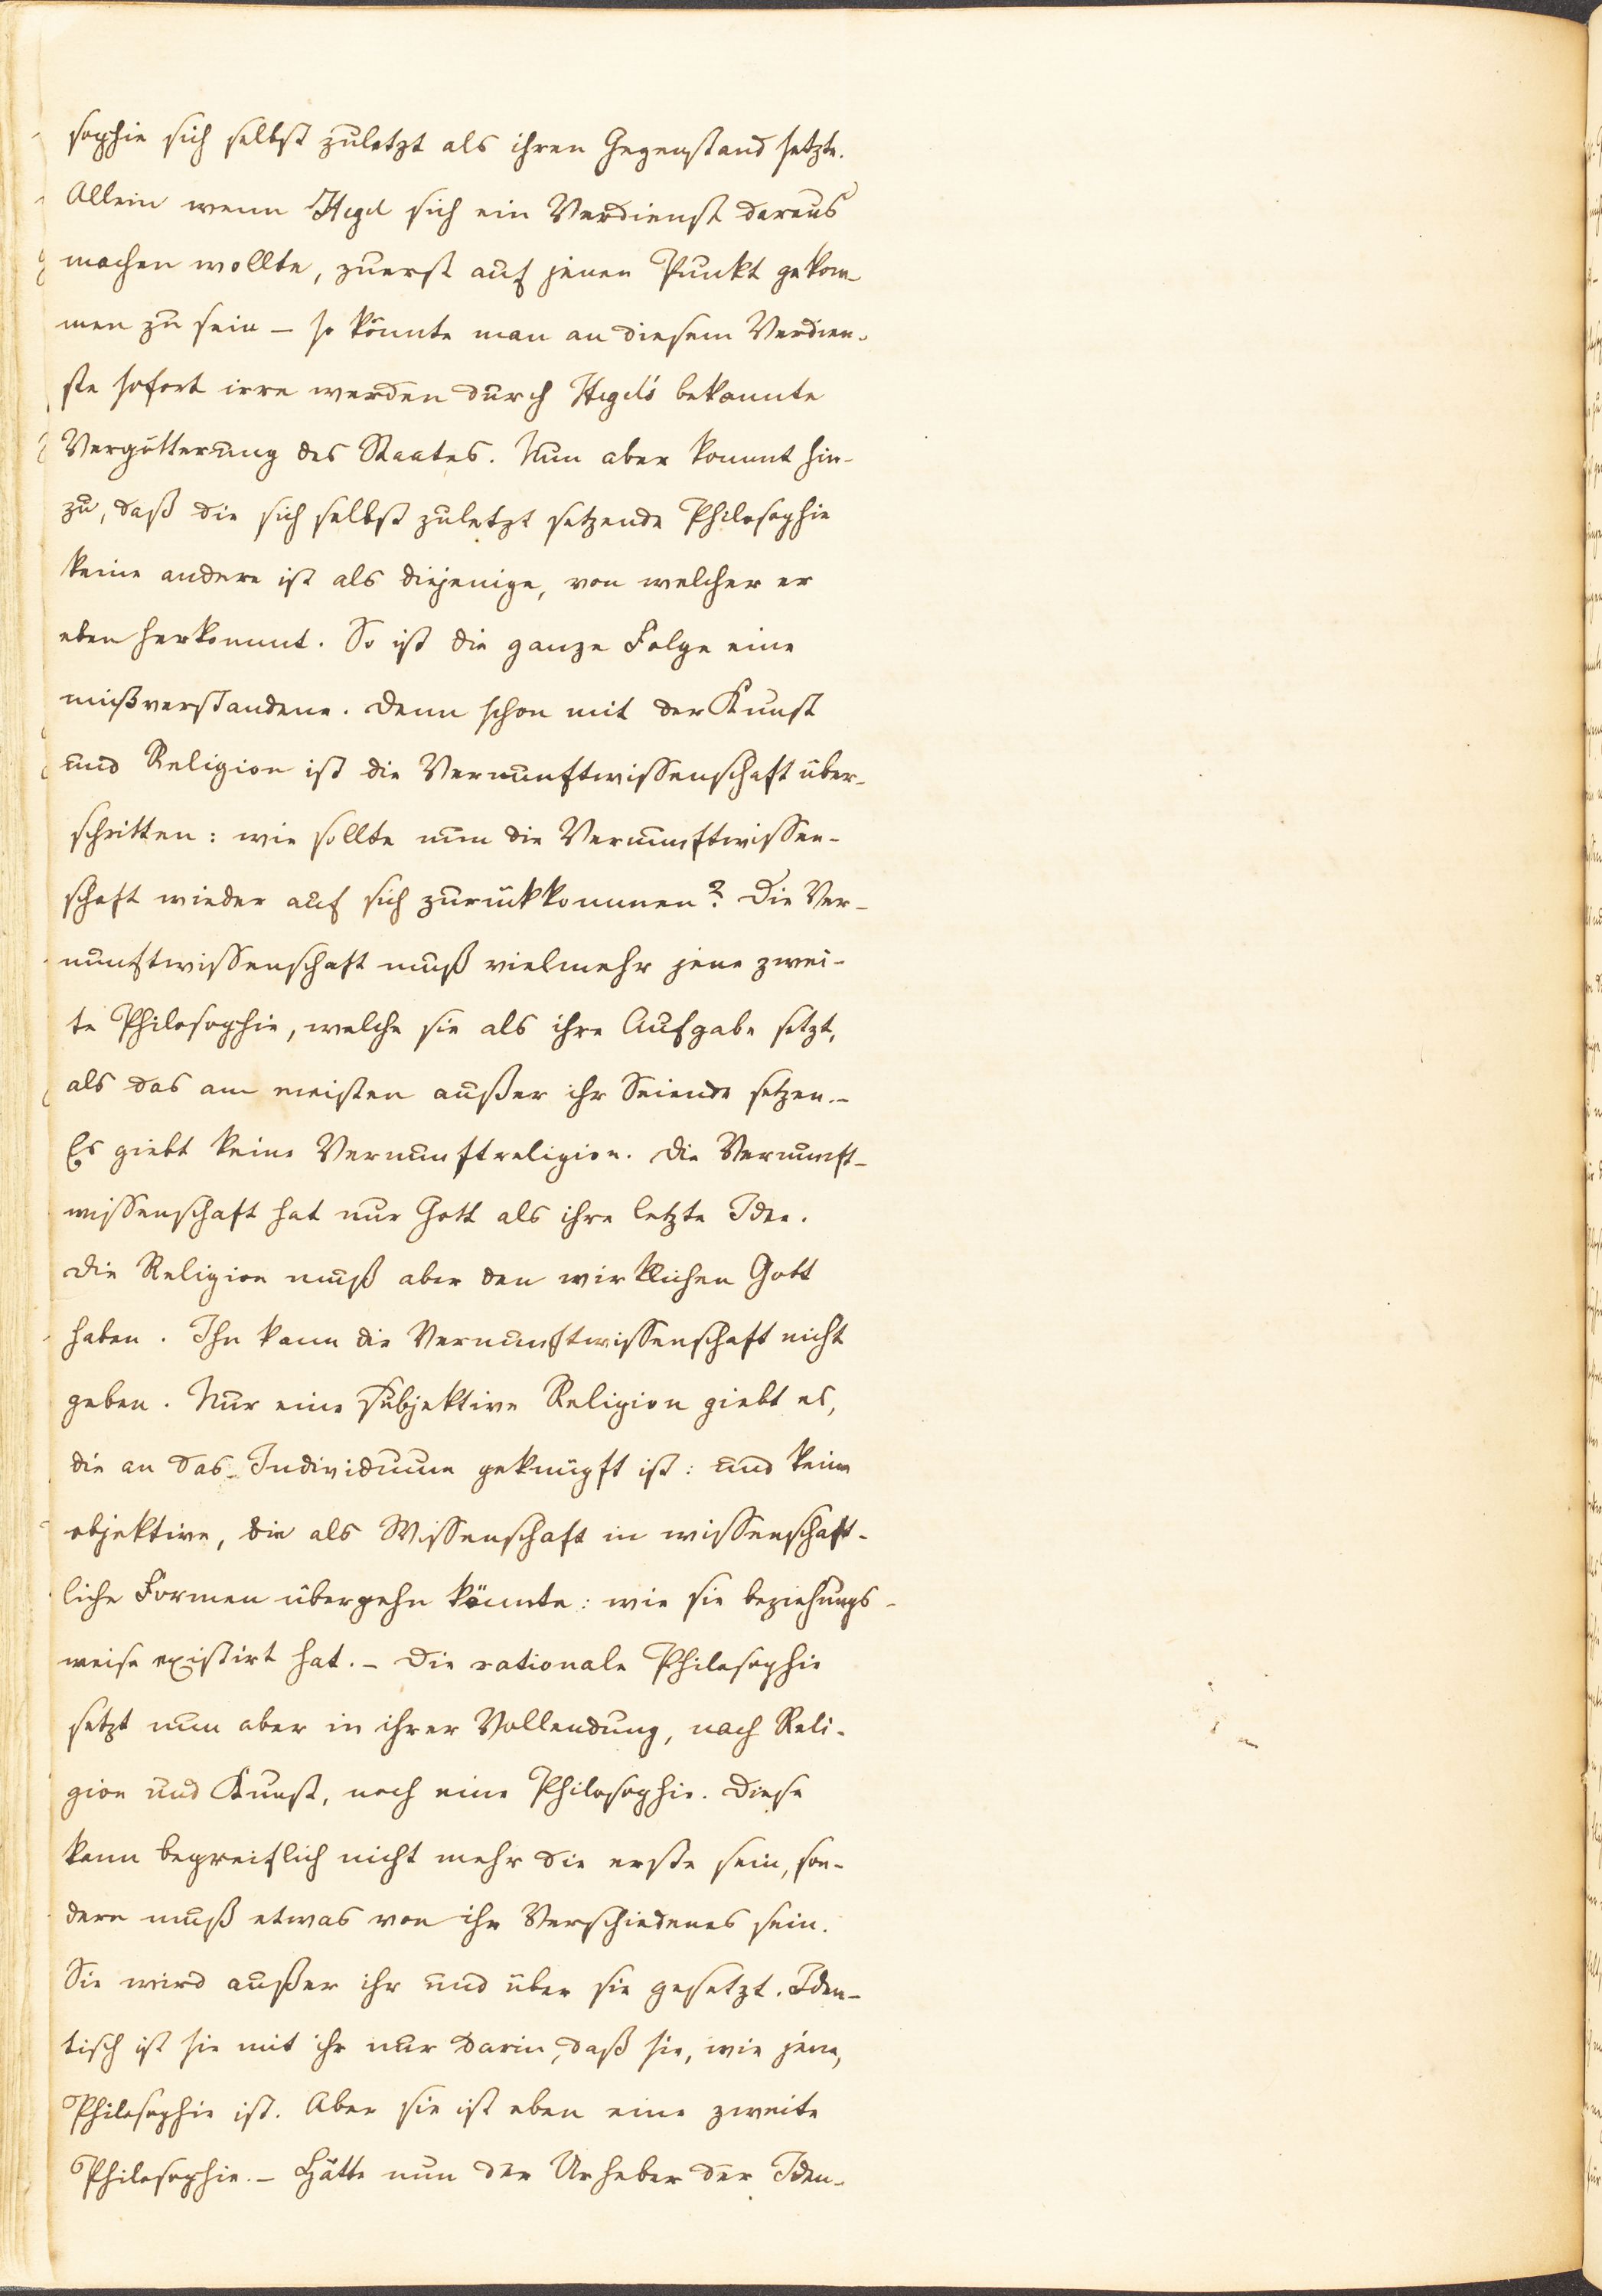 sophie sich selbst zuletzt als ihren Gegenstand setzte.
Allein wenn Hegel sich ein Verdienst daraus
machen wollte, zuerst auf jenen Punkt gekom-
men zu sein – so könnte man an diesem Verdien-
ste sofort irre werden durch Hegel's bekannte
Vergötterung des Staates. Nun aber kommt hin-
zu, daß die sich selbst zuletzt setzende Philosophie
keine andere ist als diejenige, von welcher er
eben herkommt. So ist die ganze Folge eine
mißverstandene. Denn schon mit der Kunst
und Religion ist die Vernunftwissenschaft über-
schritten: wie sollte nun die Vernunftwissen-
schaft wieder auf sich zurückkommen? Die Ver-
nunftwissenschaft muß vielmehr jene zwei-
te Philosophie, welche sie als ihre Aufgabe setzt,
als das am meisten außer ihr Seiende setzen.–
Es giebt keine Vernunftreligion. Die Vernunft-
wissenschaft hat nur Gott als ihre letzte Idee.
Die Religion muß aber den wirklichen Gott
haben. Ihn kann die Vernunftwissenschaft nicht
geben. Nur eine subjektive Religion giebt es,
die an das Individuum geknüpft ist: und keine
objektive, die als Wissenschaft in wissenschaft-
liche Formen übergehn könnte: wie sie beziehungs-
weise existirt hat.– Die rationale Philosophie
setzt nun aber in ihrer Vollendung, nach Reli-
gion und Kunst, noch eine Philosophie. Diese
kann begreiflich nicht mehr die erste sein, son-
dern muß etwas von ihr Verschiedenes sein.
Sie wird außer ihr und über sie gesetzt. Iden-
tisch ist sie mit ihr nur darin, daß sie, wie jene,
Philosophie ist. Aber sie ist eben eine zweite
Philosophie.– Hätte nun der Urheber der Iden-